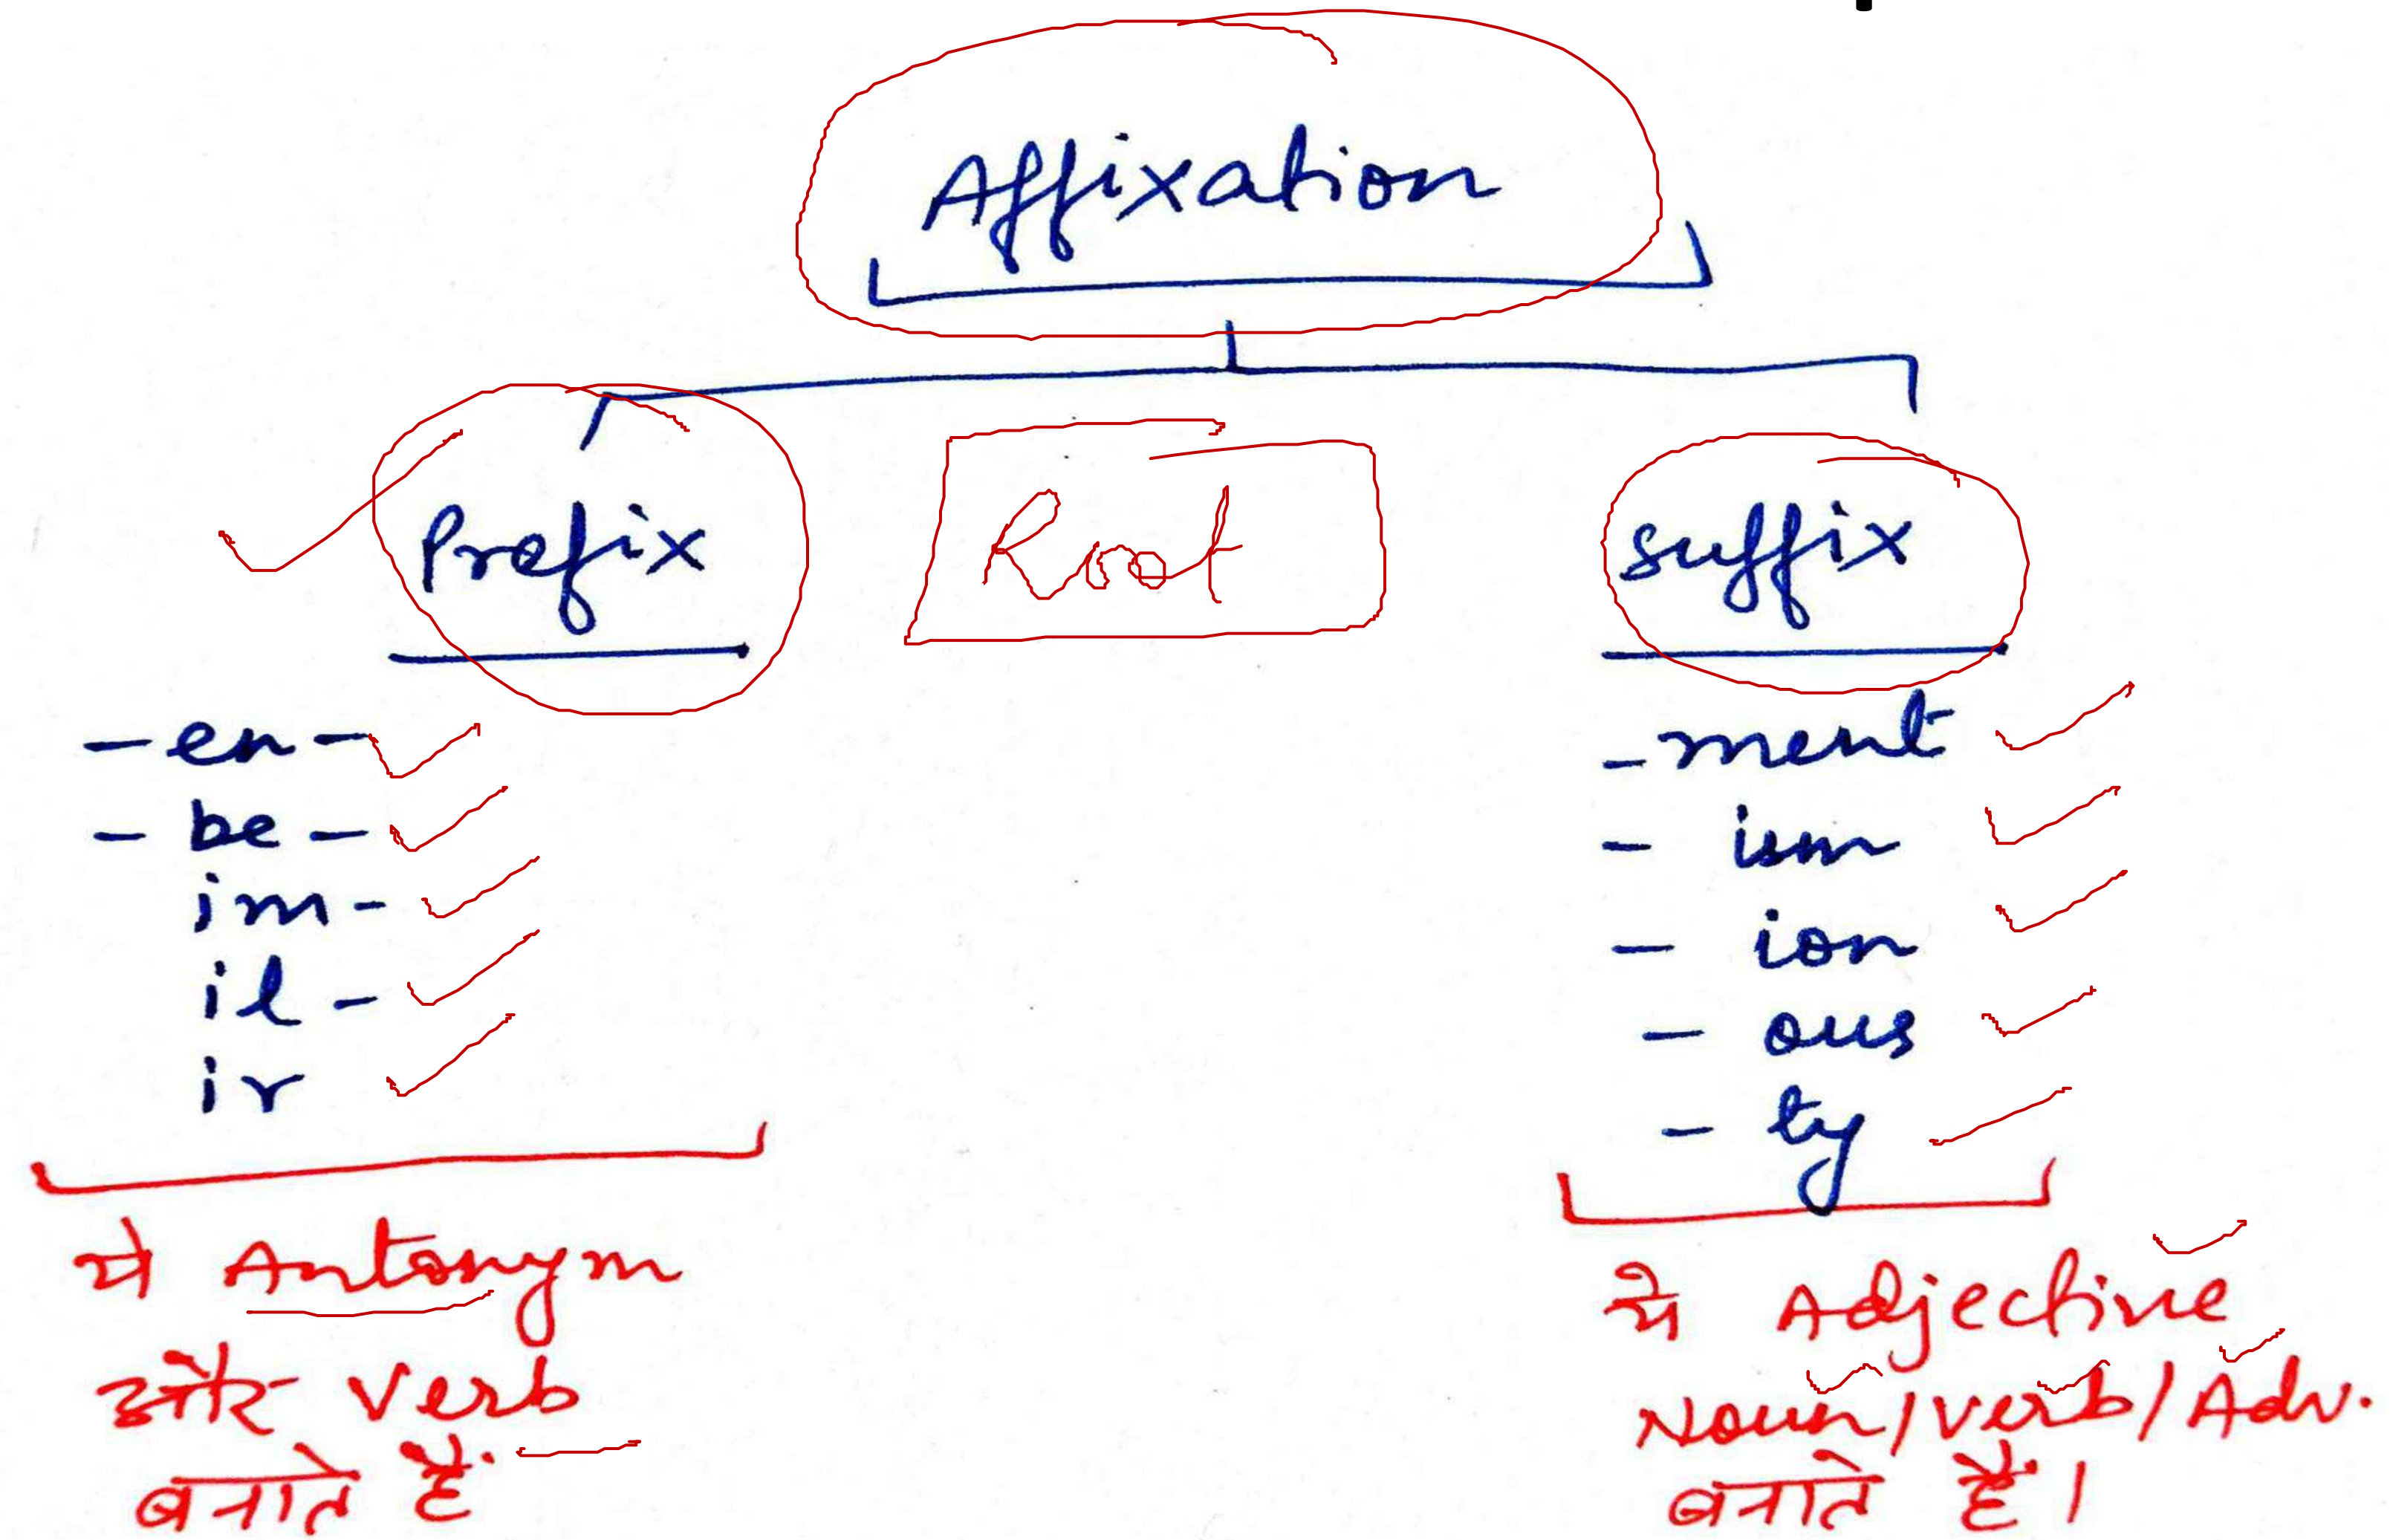 Affixation
Prefix
Root
suffix
- en -
- be -
im -
il -
ir
ये Antonym
और verb
बनाते हैं
- ment
- ism
- ion
- ous
- ty
ये Adjective
Noun/verb/Adv.
बनाते हैं।